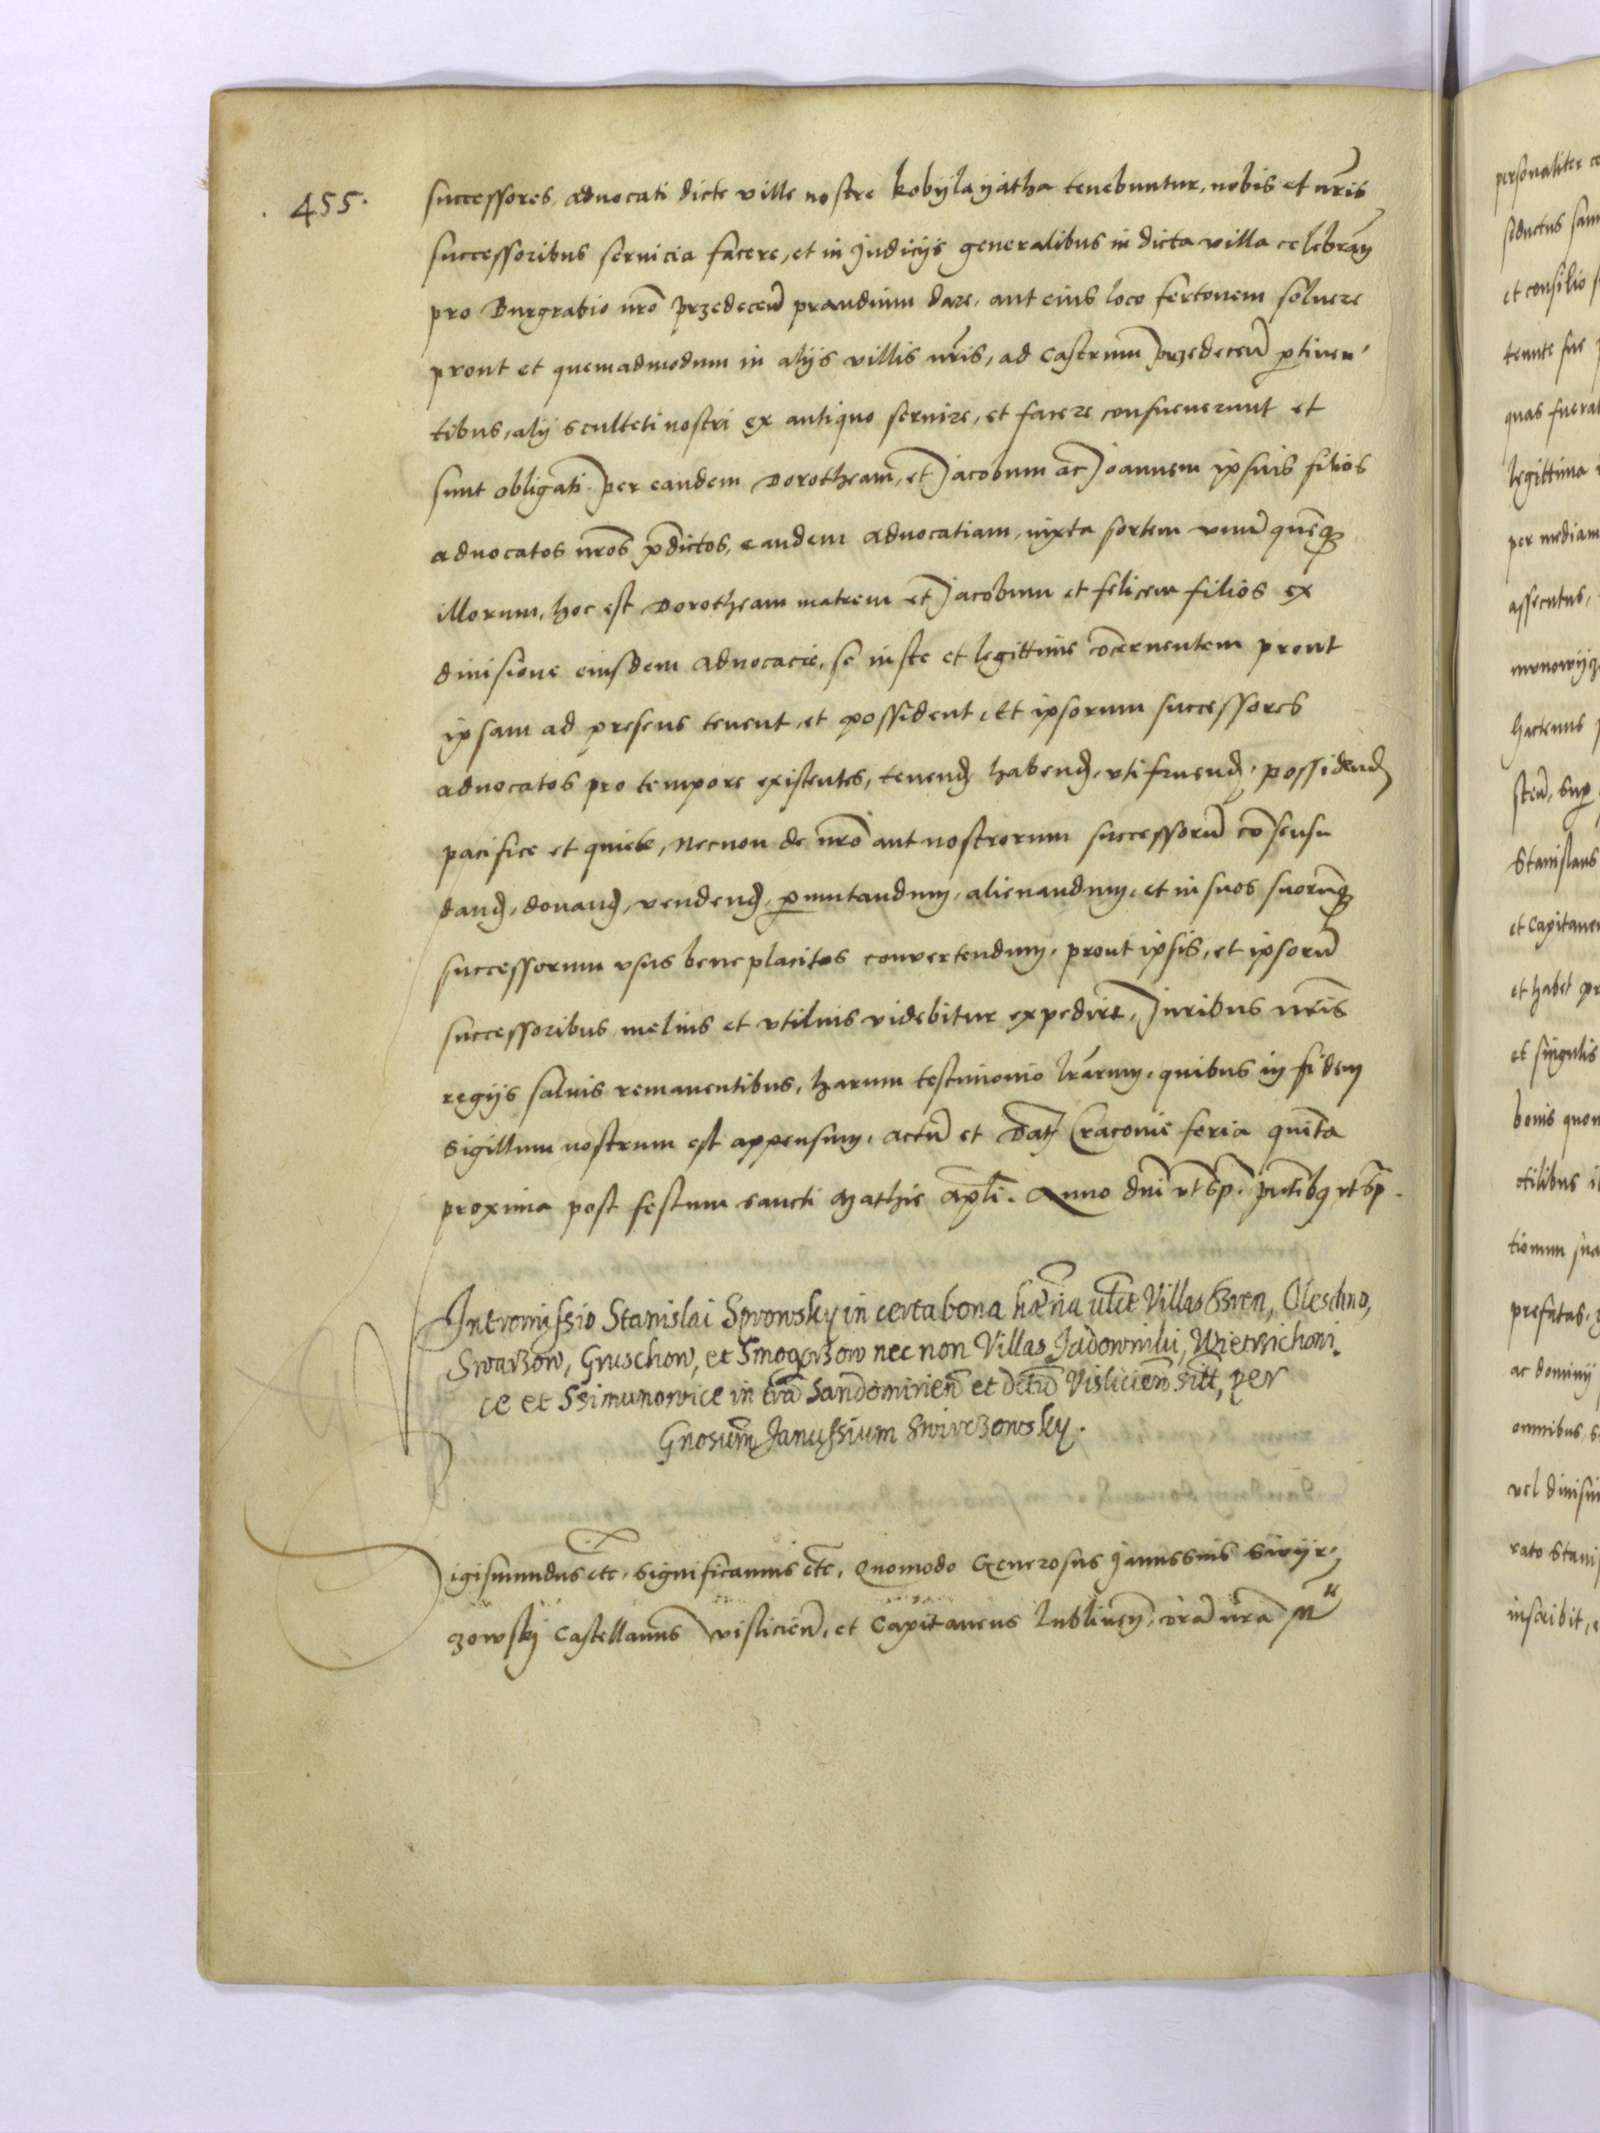 . 455 .
successores, advocati dicte ville nostre kobylayatha tenebuntur, nobis et nr̃is
successoribus servicia facere, et in Judicijs generalibus in dicta villa celebran̄
pro Burgrabio nr̃o przedeceñ prandium dare, aut eius loco fertonem solvere
prout et quemadmodum in alijs villis nr̃is, ad castrum przedeceñ ptinen
tibus, alij sculteti nostri ex antiquo servire, et facere consueverunt et
sunt obligati. per eandem Dorotheam, et Jacobum ac Joannem ipsius filios
advocatos nr̃os p̃dictos, eandem advocatiam, iuxta sortem unũ quẽq
illorum, hoc est Dorotheam matrem et Jacobum et felicem filios ex
divisione eiusdem advocacie, se iuste et legittime cõcernentem prout
ipsam ad presens tenent et possident, et ipsorum successores
advocatos pro tempore existentes, tenend̃ habend̃, utifruend̃, possidend̃
pacifice et quiete, necnon de nr̃o aut nostrorum successorũ cõsensu
dand̃, donand̃, vendend̃, pmutandum, alienandum, et in suos suorũq
successorum usus beneplacitos convertendum, prout ipsis, et ipsorũ
successoribus melius et utilius videbitur expedire, Juribus nr̃is
regijs salvis remanentibus, harum testimonio lr̃arum, quibus in fidem
sigillum nostrum est appensum, actũ et Dat̃ Cracovie feria quinta
proxima post festum sancti Mathie ap̃li. Anno dñi ut sp̃. pñtibq ut sp̃.
Intromissio Stanislai Sprowsky in certa bona hær̃ia ut̃ct Villas Bren, Oleschno,
Swarzow, Gruschow, et Smogorzow nec non Villas Jadowniki, Wietrzichovi
ce et Ssimunowice in tr̃a Sandomirieñ et dctũ Visliciẽn sitt, per
Gnosum̃ Janussium Swirczowsky.
Sigismundus etc. Significamus etc. Quomodo Generosus Janussius Swyr
czowskj Castellanus visliciẽn, et Capitaneus lubliñen, corã nr̃a M